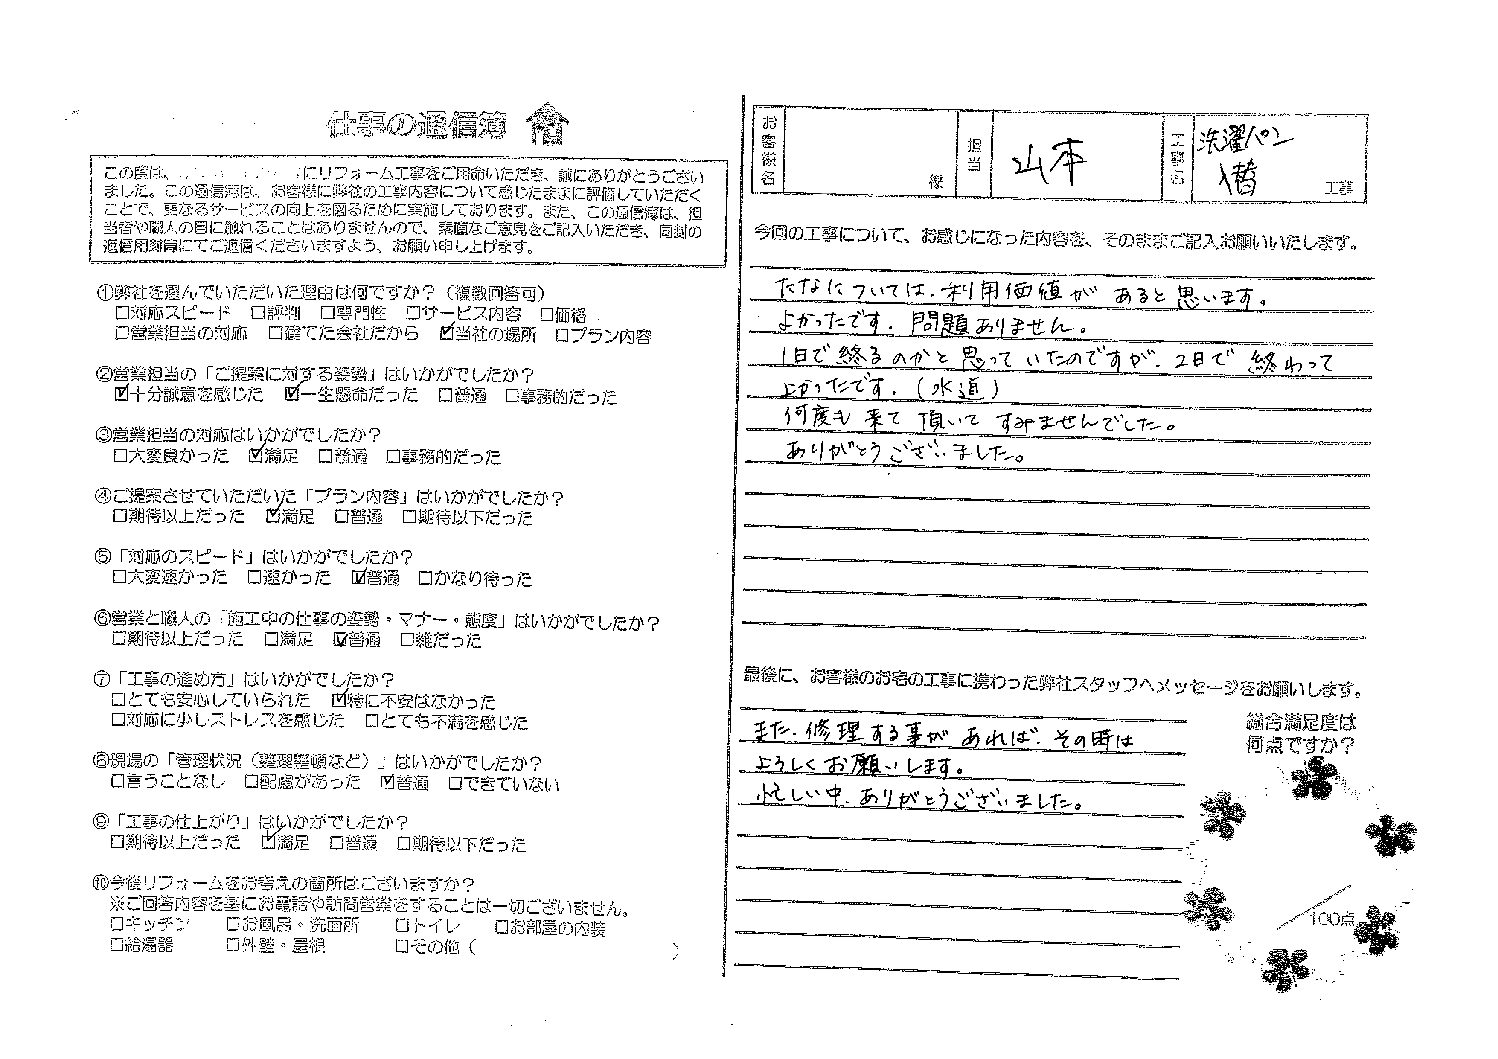 仕事の通信簿
この度は、にリフォーム工事をご用命いただき、誠にありがとうござい
ました。この通信簿は、お客様に弊社の工事内容について感じたままに評価していただく
ことで、更なるサービスの向上を図るために実施しております。また、この通信簿は、担
当者や職人の目に触れることはありませんので、率直なご意見をご記入いただき、同封の
返信用封筒にてご返信くださいますよう、お願い申し上げます。
①弊社を選んでいただいた理由は何ですか？（複数回答可）
□対応スピード □評判 □専門性 □サービス内容 □価格
□営業担当の対応 □建てた会社だから ☑当社の場所 □プラン内容
②営業担当の「ご提案に対する姿勢」はいかがでしたか？
☑十分誠意を感じた ☑一生懸命だった □普通 □事務的だった
③営業担当の対応はいかがでしたか？
□大変良かった ☑満足 □普通 □事務的だった
④ご提案させていただいた「プラン内容」はいかがでしたか？
□期待以上だった ☑満足 □普通 □期待以下だった
⑤「対応のスピード」はいかがでしたか？
□大変速かった □速かった ☑普通 □かなり待った
⑥営業と職人の「施工中の仕事の姿勢・マナー・態度」はいかがでしたか？
□期待以上だった □満足 ☑普通 □雑だった
⑦「工事の進め方」はいかがでしたか？
□とても安心していられた ☑特に不安はなかった
□対応に少しストレスを感じた □とても不満を感じた
⑧現場の「管理状況（整理整頓など）」はいかがでしたか？
□言うことなし □配慮があった ☑普通 □できていない
⑨「工事の仕上がり」はいかがでしたか？
□期待以上だった ☑満足 □普通 □期待以下だった
⑩今後リフォームをお考えの箇所はございますか？
※ご回答内容を基にお電話や訪問営業をすることは一切ございません。
□キッチン □お風呂・洗面所 □トイレ □お部屋の内装
□給湯器 □外壁・屋根 □その他（ ）
お客様名 様 担当 山本 工事名 洗濯パン
入替 工事
今回の工事について、お感じになった内容を、そのままご記入お願いいたします。
たなについては、利用価値が あると思います。
よかったです。問題ありません。
1日で終るのかと思っていたのですが、2日で 終わって
よかったです。(水道)
何度も来て頂いてすみませんでした。
ありがとうございました。
最後に、お客様のお宅の工事に携わった弊社スタッフへメッセージをお願いします。
また、修理する事が あれば、その時は
よろしくお願いします。
忙しい中、ありがとうございました。
総合満足度は
何点ですか？
/100点